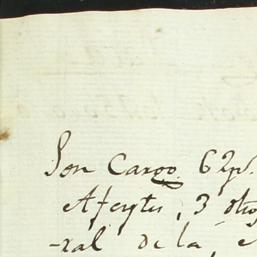 Son Cargo 62ps.
Afeytes, 3 otro
-ral de la, e